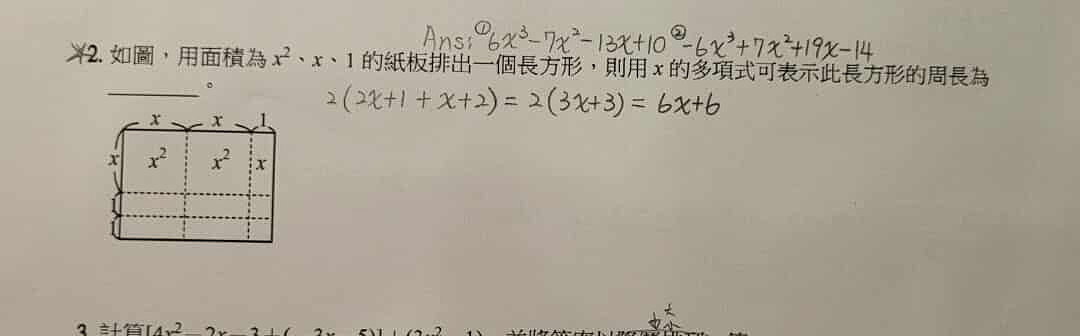 Ans: ①6x³-7x²-13x+10 ②-6x³+7x²+19x-14
※2. 如圖，用面積為 x²、x、1 的紙板排出一個長方形，則用 x 的多項式可表示此長方形的周長為
________。
2(2x+1+x+2)=2(3x+3)=6x+6
x x 1
x x² x² x
1
1
3. 計算[4x²-2x-3+(